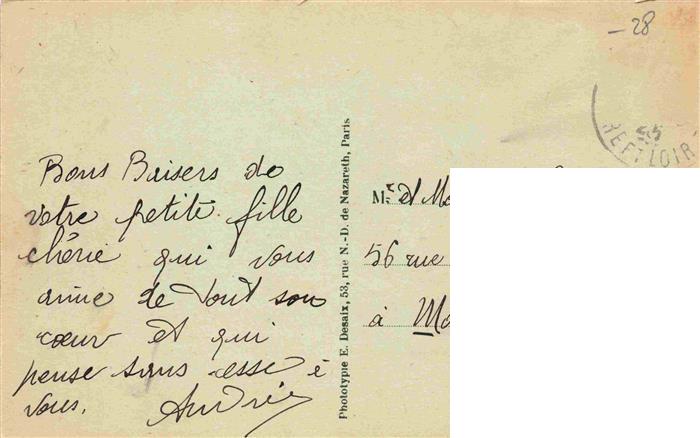 -28
HEF LOIR
Bons Baisers de
votre petite fille
chérie qui vous
aime de tout son
cœur et qui
pense sans cesse à
vous. Andrée
Phototypie E. Desaix, 53, rue N.-D. de Nazareth, Paris
Mr et
56 rue
à